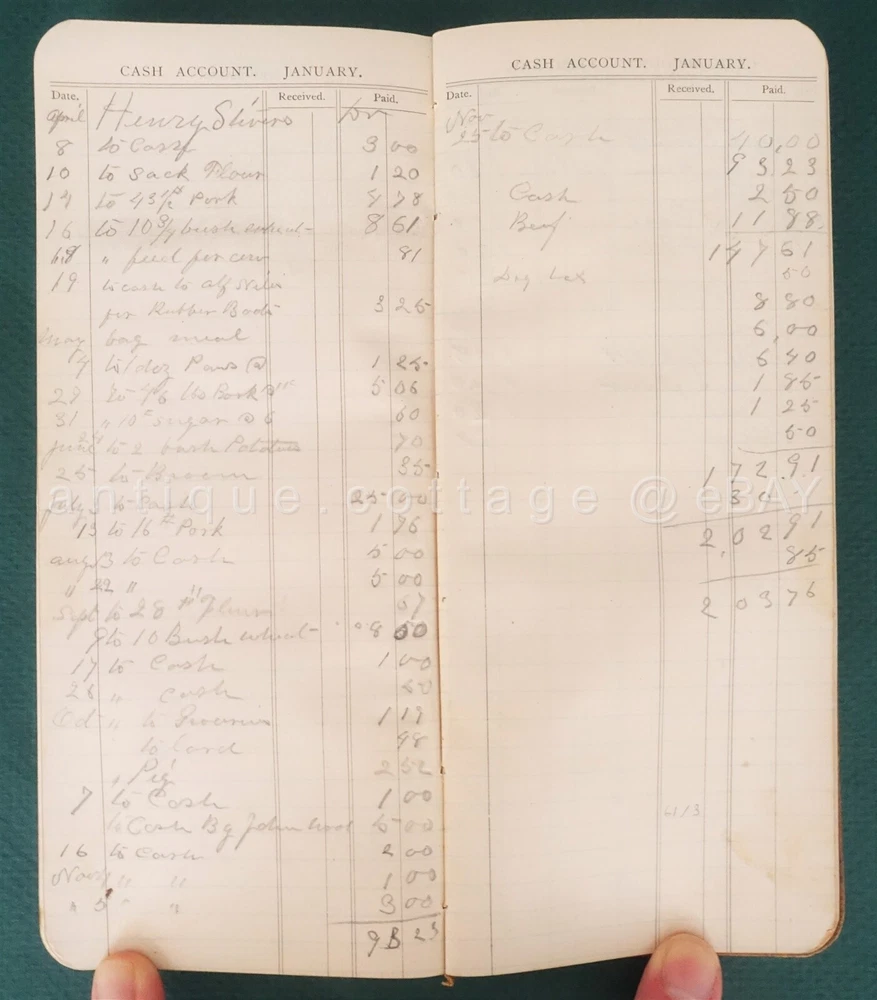 CASH ACCOUNT. JANUARY.
Date. Received. Paid.
April Henry Stivers Dr
8 to Cash 3 00
10 to Sack Flour 1 20
14 to 43 1/2 Pork 4 78
16 to 10 3/4 bush 8 61
" feed per cow 81
19 to cash to
for Rubber Boots 3 25
May bag meal
to 1 doz @ 1 25
29 to 46 lbs Pork @ 5 06
31 " 10 sugar @ 6 60
June to 2 bush Potatoes 70
25 to Broom 35
July 3 to Cash 25 00
13 to 16 # Pork 1 76
aug 13 to Cash 5 00
" 22 " " 5 00
Sept to 28 # 67
9 to 10 Bush wheat 8 60
17 to Cash 1 00
26 " cash 50
Oct " to 1 19
to Lard 98
" 2 52
7 to Cash 1 00
to Cash By John 5 00
16 to Cash 2 00
Nov " " 1 00
" 5 " " 3 00
93 23
CASH ACCOUNT. JANUARY.
Date. Received. Paid.
Nov
25 to Cash 40,00
93 23
Cash 2 50
Beef 11 88
147 61
Dog tax 50
8 80
6,00
6 40
1 85
1 25
50
172.91
30
2,02 91
85
203 76
antique.cottage@eBAY